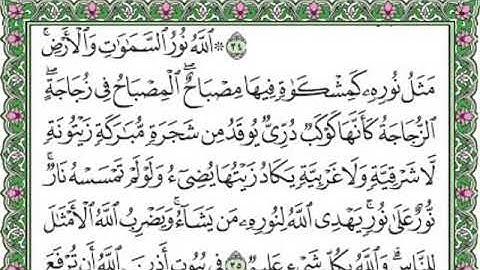 ٣٤ ۞ ٱللَّهُ نُورُ ٱلسَّمَٰوَٰتِ وَٱلْأَرْضِ ۚ
مَثَلُ نُورِهِۦ كَمِشْكَوٰةٍ فِيهَا مِصْبَاحٌ ۖ ٱلْمِصْبَاحُ فِى زُجَاجَةٍ ۖ
ٱلزُّجَاجَةُ كَأَنَّهَا كَوْكَبٌ دُرِّىٌّ يُوقَدُ مِن شَجَرَةٍ مُّبَٰرَكَةٍ زَيْتُونَةٍ
لَّا شَرْقِيَّةٍ وَلَا غَرْبِيَّةٍ يَكَادُ زَيْتُهَا يُضِىٓءُ وَلَوْ لَمْ تَمْسَسْهُ نَارٌ ۚ
نُّورٌ عَلَىٰ نُورٍ ۗ يَهْدِى ٱللَّهُ لِنُورِهِۦ مَن يَشَآءُ ۚ وَيَضْرِبُ ٱللَّهُ ٱلْأَمْثَٰلَ
لِلنَّاسِ ۗ وَٱللَّهُ بِكُلِّ شَىْءٍ عَلِيمٌ ٣٥ فِى بُيُوتٍ أَذِنَ ٱللَّهُ أَن تُرْفَعَ